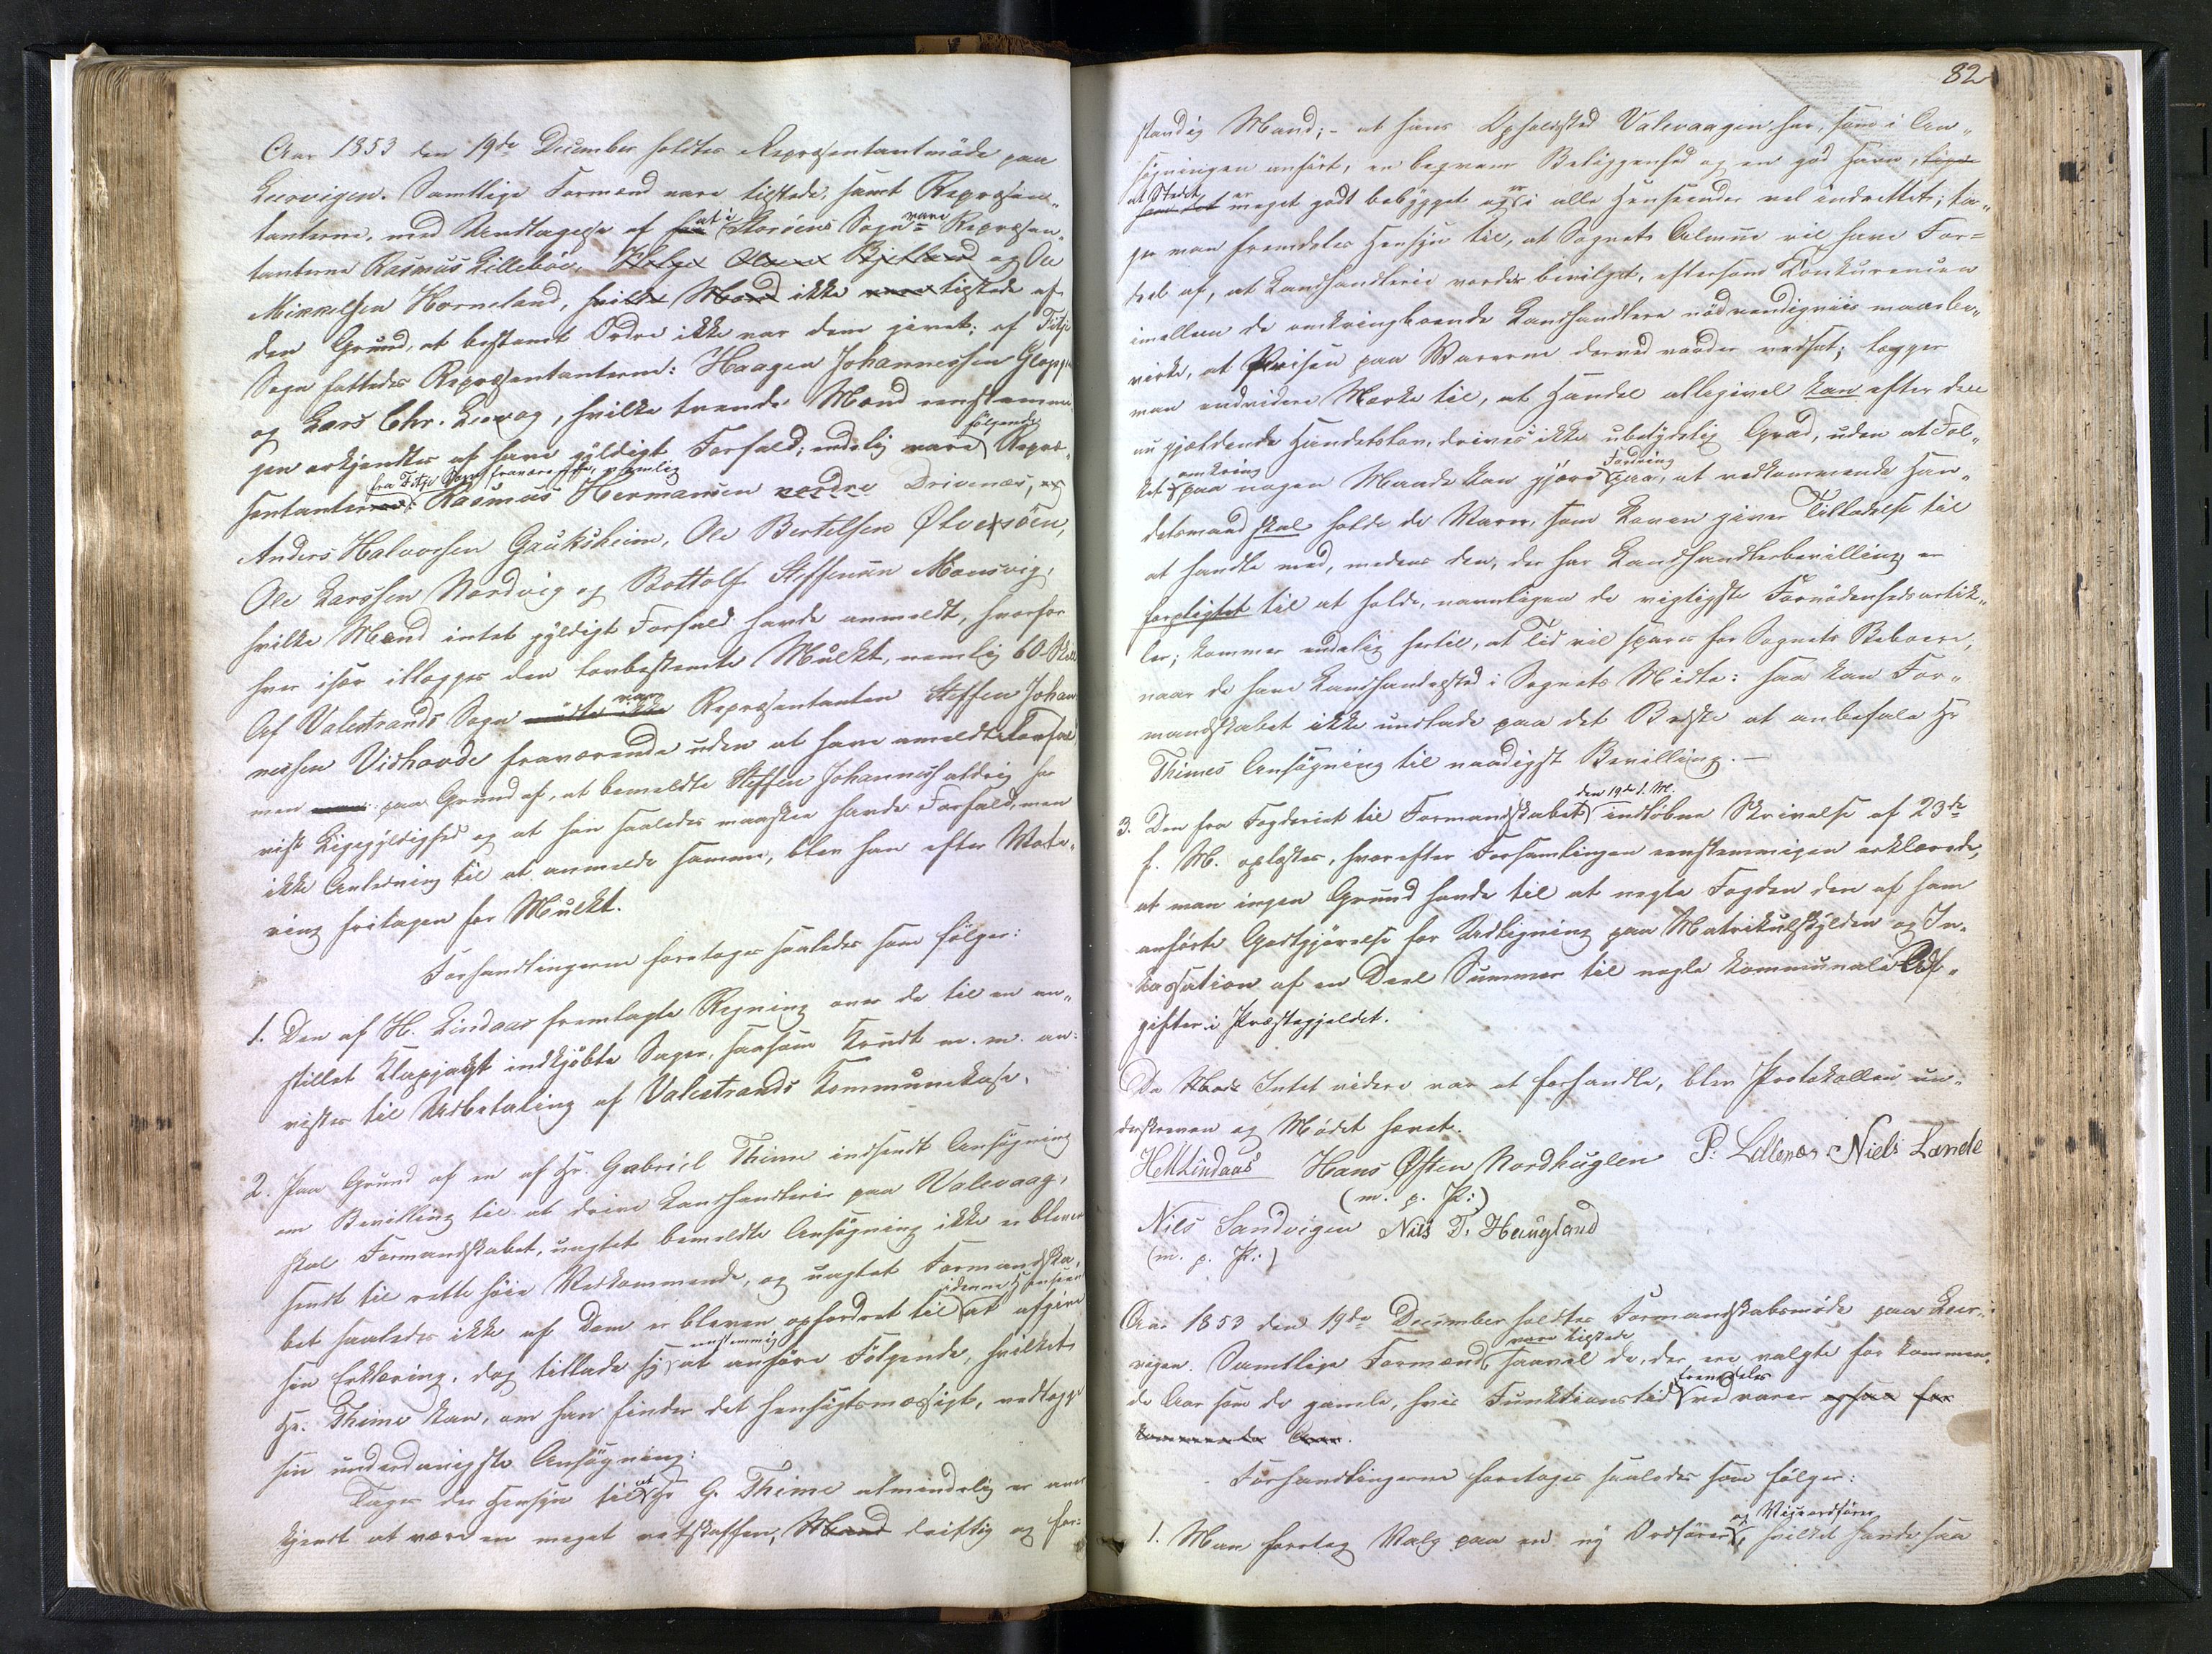 Aar 1853 den 19de December holdtes Repræsentantmöde paa
Leervigen. Samtlige Formænd vare tilstede, samt Repræsen-
tanterne, med Undtagelse af at i Storöens Sogn vare Repræsen-
tanterne Rasmus Lillebøe, Helge Olsen Bjelland og Ole
Mikkelsen Horneland, hvilke Mænd ikke vare tilstede af
den Grund, at bestemt Ordre ikke var dem givet; af Fitje
Sogn hattedes Repræsentanterne: Haagen Johannessen Gloppen
og Lars Chr. Leevaag, hvilke trende Mænd eenstemmi-
gen erkjendtes at have gyldigt Forfald; endelig vare følgende Repræ-
sentanterne fra Fitje Sogn fraværende, nemlig Rasmus Hermansen nordre Drivenæs, og
Anders Halvorsen Gauksheim, Ole Bertelsen Ølversöen,
Ole Larssen Nordvig og Bottolf Steffensen Mausvig,
hvilke Mænd intet gyldigt Forfald havde anmeldt, hvorfor
hver især ilægges den lovbestemte Mulkt, nemlig 60 Skill
Af Valestrands Sogn mødte ikke var Repræsentanten Steffen Johan-
nessen Vidhovde fraværende uden at have anmeldt Forfald
men paa Grund af, at bemeldte Steffen Johanness. aldrig har
vist Ligegyldighed og at han saaledes maaskee havde Forfald, men
ikke Anledning til at anmelde samme, blev han efter Vote-
ring fritagen for Mulkt.
Forhandlingerne foretoges saaledes som følger:
1. Den af H. Lindaas fremlagte Regning over de til en an-
stillet Klapjagt indkjøbte Sager, saasom Krudt m. m. an-
vistes til Udbetaling af Valestrands Kommunekasse.
2. Paa Grund af en af Hr. Gabriel Thime indsendt Ansøgning
om Bevilling til at drive Landhandlerie paa Valevaag,
skal Formandskabet, uagtet bemeldte Ansøgning ikke er bleven
sendt til rette høie Vedkommende, og uagtet Formandska-
bet saaledes ikke af Dem er bleven opfordret til i denne Henseende at afgive
sin Erklæring, dog tillade sig eenstemmig at anføre Følgende, hvilket
Hr. Thime kan, om han finder det hensigtsmæssigt, vedlægge
sin underdanigste Ansøgning:
Tages der Hensyn til at Hr G. Thime almindelig er aner-
kjendt at være en meget retskaffen, Mand driftig og for-
82
standig Mand; - at hans Opholdssted Valevaagen har, som i An-
søgningen anført, en beqvem Beliggenhed og en god Havn, ligesom
at Stedet er meget godt bebygget og er i alle Henseender vel indrettet; ta-
ger man fremdeles Hensyn til, at Sognets Almue vil have For-
deel af, at Landhandlerie vorder bevilget, eftersom Konkurencen
imellem de omkringboende Landhandlere nødvendigviis maa be-
virke, at Prisen paa Varerne derved vorder nedsat; lægger
man endvidere Mærke til, at Handel alligevel kan efter den
nu gjældende Handelslov, drives i ikke ubetydelig Grad, uden at Fol-
ket omkring paa nogen Maade kan gjøre Fordring paa, at vedkommende Han-
delsmand skal holde de Varer, som Loven giver Tilladelse til
at handle med, medens den, der har Landhandlerbevilling er
forpligtet til at holde, navnligen de vigtigste Fornødenhedsartik-
ler; kommer endelig hertil, at Tid vil spares for Sognets Beboere,
naar de have Landhandelsted i Sognets Midte: saa kan For-
mandskabet ikke undlade paa det Bedste at anbefale Hr
Thimes Ansøgning til naadigst Bevilling. —
3. Den fra Fogderiet til Formandskabet den 19de d. M. indløbne Skrivelse af 23de
f. M. oplæstes, hvorefter Forsamlingen eenstemmigen erklærede,
at man ingen Grund havde til at negte Fogden den af ham
anførte Godtgjørelse for Udligning paa Matrikulskylden og In-
kassation af en Deel Summer til nogle kommunale Af-
gifter i Præstegjeldet.
Da Mere Intet videre var at forhandle, blev Protokollen un-
derskreven og Mødet hævet.
H M Lindaas Hans Østen Nordhuglen P. Lillenæs Niels Lande
(m. p. P:)
Nils Sandvigen Nils T. Heugland
(m. p. P:)
Aar 1853 den 19de December holdtes Formandskabsmöde paa Leer-
vigen. Samtlige Formænd vare tilstede, saavel de, der ere valgte for kommen-
de Aar som de gamle, hvis Funktionstid fremdeles vedvarer ogsaa for
kommende Aar.
Forhandlingerne foretoges saaledes som følger:
1. Man foretog Valg paa en ny Ordfører og Viceordfører, hvilket havde saa